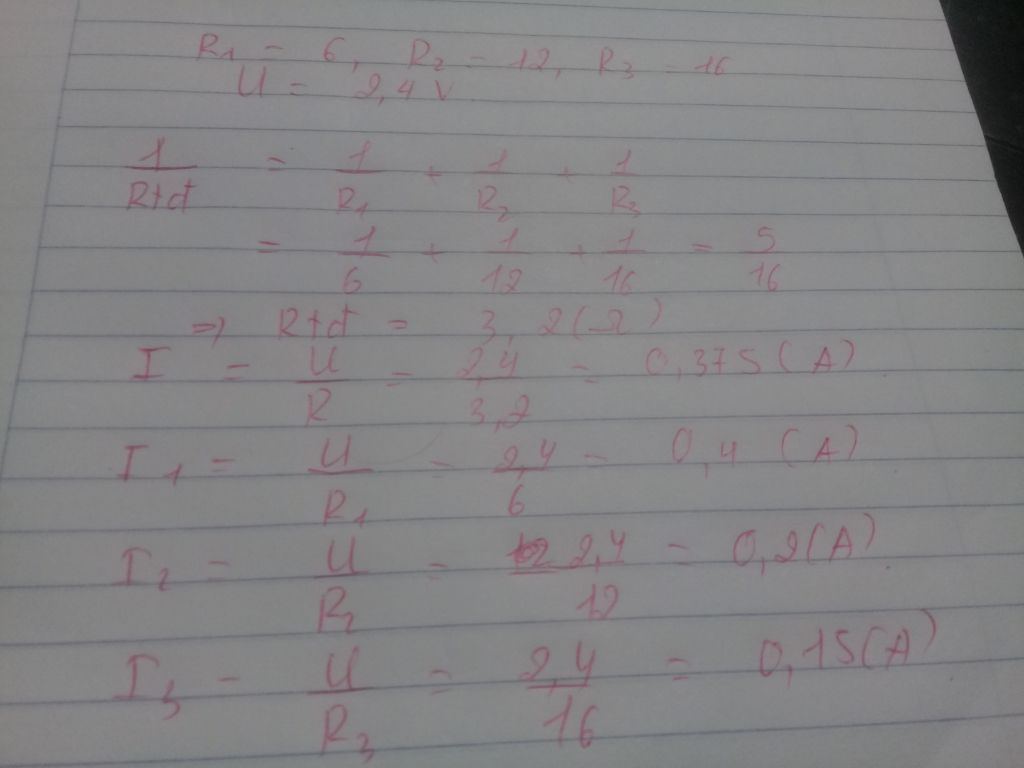 R1 = 6, R2 = 12, R3 = 16
U = 2,4 V
1/Rtđ = 1/R1 + 1/R2 + 1/R3
= 1/6 + 1/12 + 1/16 = 5/16
=> Rtđ = 3,2 (Ω)
I = U/R = 2,4/3,2 = 0,375 (A)
I1 = U/R1 = 2,4/6 = 0,4 (A)
I2 = U/R2 = 2,4/12 = 0,2 (A)
I3 = U/R3 = 2,4/16 = 0,15 (A)